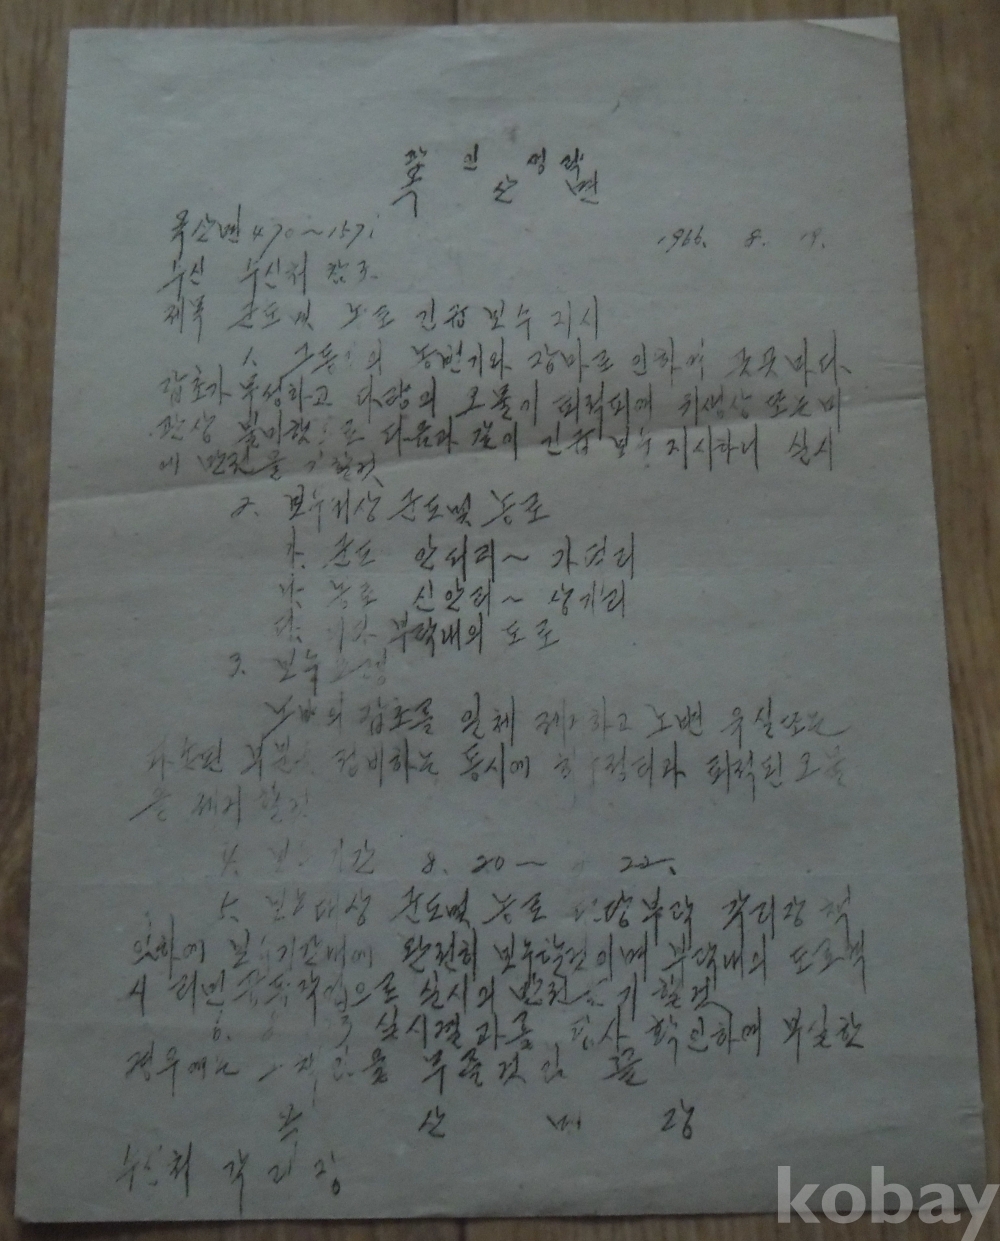 옥산면
옥산면 470~1571 1966. 8. 19.
수신 수신처 참조
제목 군도 및 농로 긴급 보수 지시
1. 그동 의 농번기와 장마로 인하여 곳곳마다
잡초가 무성하고 다량의 오물이 퇴적되여 위생상 또는 미
관상 불미 다음과 같이 긴급 보수 지시하니 실시
에 만전을 기할것
2. 보수대상 군도및 농로
가. 군도 안서리~가덕리
나. 농로 신안리~상기리
다. 기타 부락내의 도로
3. 보수요령
노변의 잡초를 일체 제거하고 노변 유실또는
부분 정비하는 동시에 퇴적된 오물
을 제거 할것
4. 보수기간 8. 20~ 22.
5. 보수대상 군도및 농로 담당부락 각리장 책
임하에 보수기간내에 완전히 보수할것이며 부락내의 도로 역
시 리민 작업으로 실시의 만전을 기할것
6. 실시결과를 확인하며 부실한
경우에는 책임을 무를것임 끝
옥 산 면 장
수신처 각 리 장
kobay